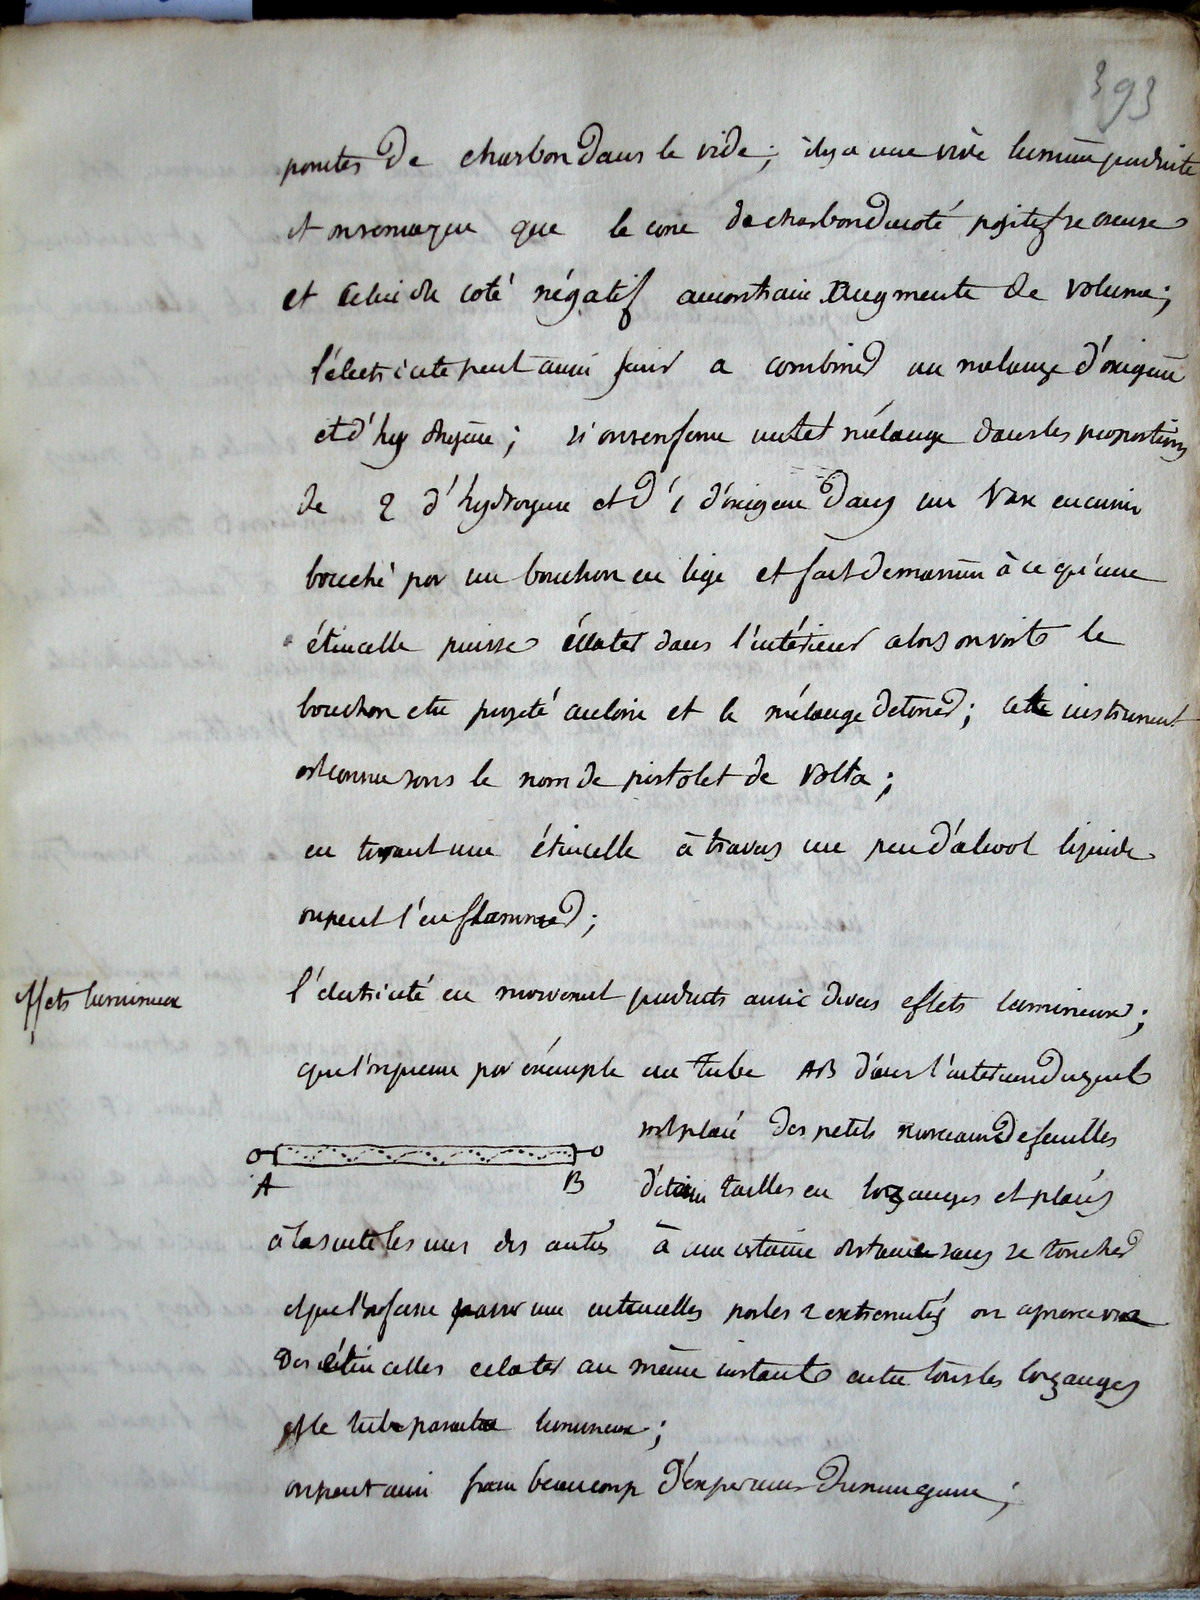 393
pointes de charbon dans le vide; il y a une vive lumière produite
et on remarque que le cone de charbon du coté positif se creuse
et celui du coté négatif au contraire augmente de volume;
l'électricité peut aussi faire combiner un mélange d'oxigène
et d'hydrogène; si on renferme un tel mélange dans les proportions
de 2 d'hydrogene et d'1 d'oxigene dans un vase en cuivre
bouché par un bouchon en liege et fait de manière à ce qu'une
étincelle puisse éclater dans l'intérieur alors on voit le
bouchon etre projeté au loin et le mélange detoner; cette instrument
est connu sous le nom de pistolet de Volta;
en tirant une étincelle à travers un peu d'alcool liquide
on peut l'enflammer;
effets lumineux
l'électricité en mouvement produits aussi divers effets lumineux;
que l'on prenne par éxemple un tube AB dans l'interieur duquel
est placé des petits morceaux de feuilles
A B
d'étain tailles en lozanges et placés
à la suite les unes des autres à une certaine distance sans se toucher
et que l'on fasse passer une entincelles par les 2 extremités on apercevra
des étincelles eclater au même instant entre tous les lozanges
et le tube paraitra lumineux;
on peut aussi faire beaucoup d'experiences du meme genre;